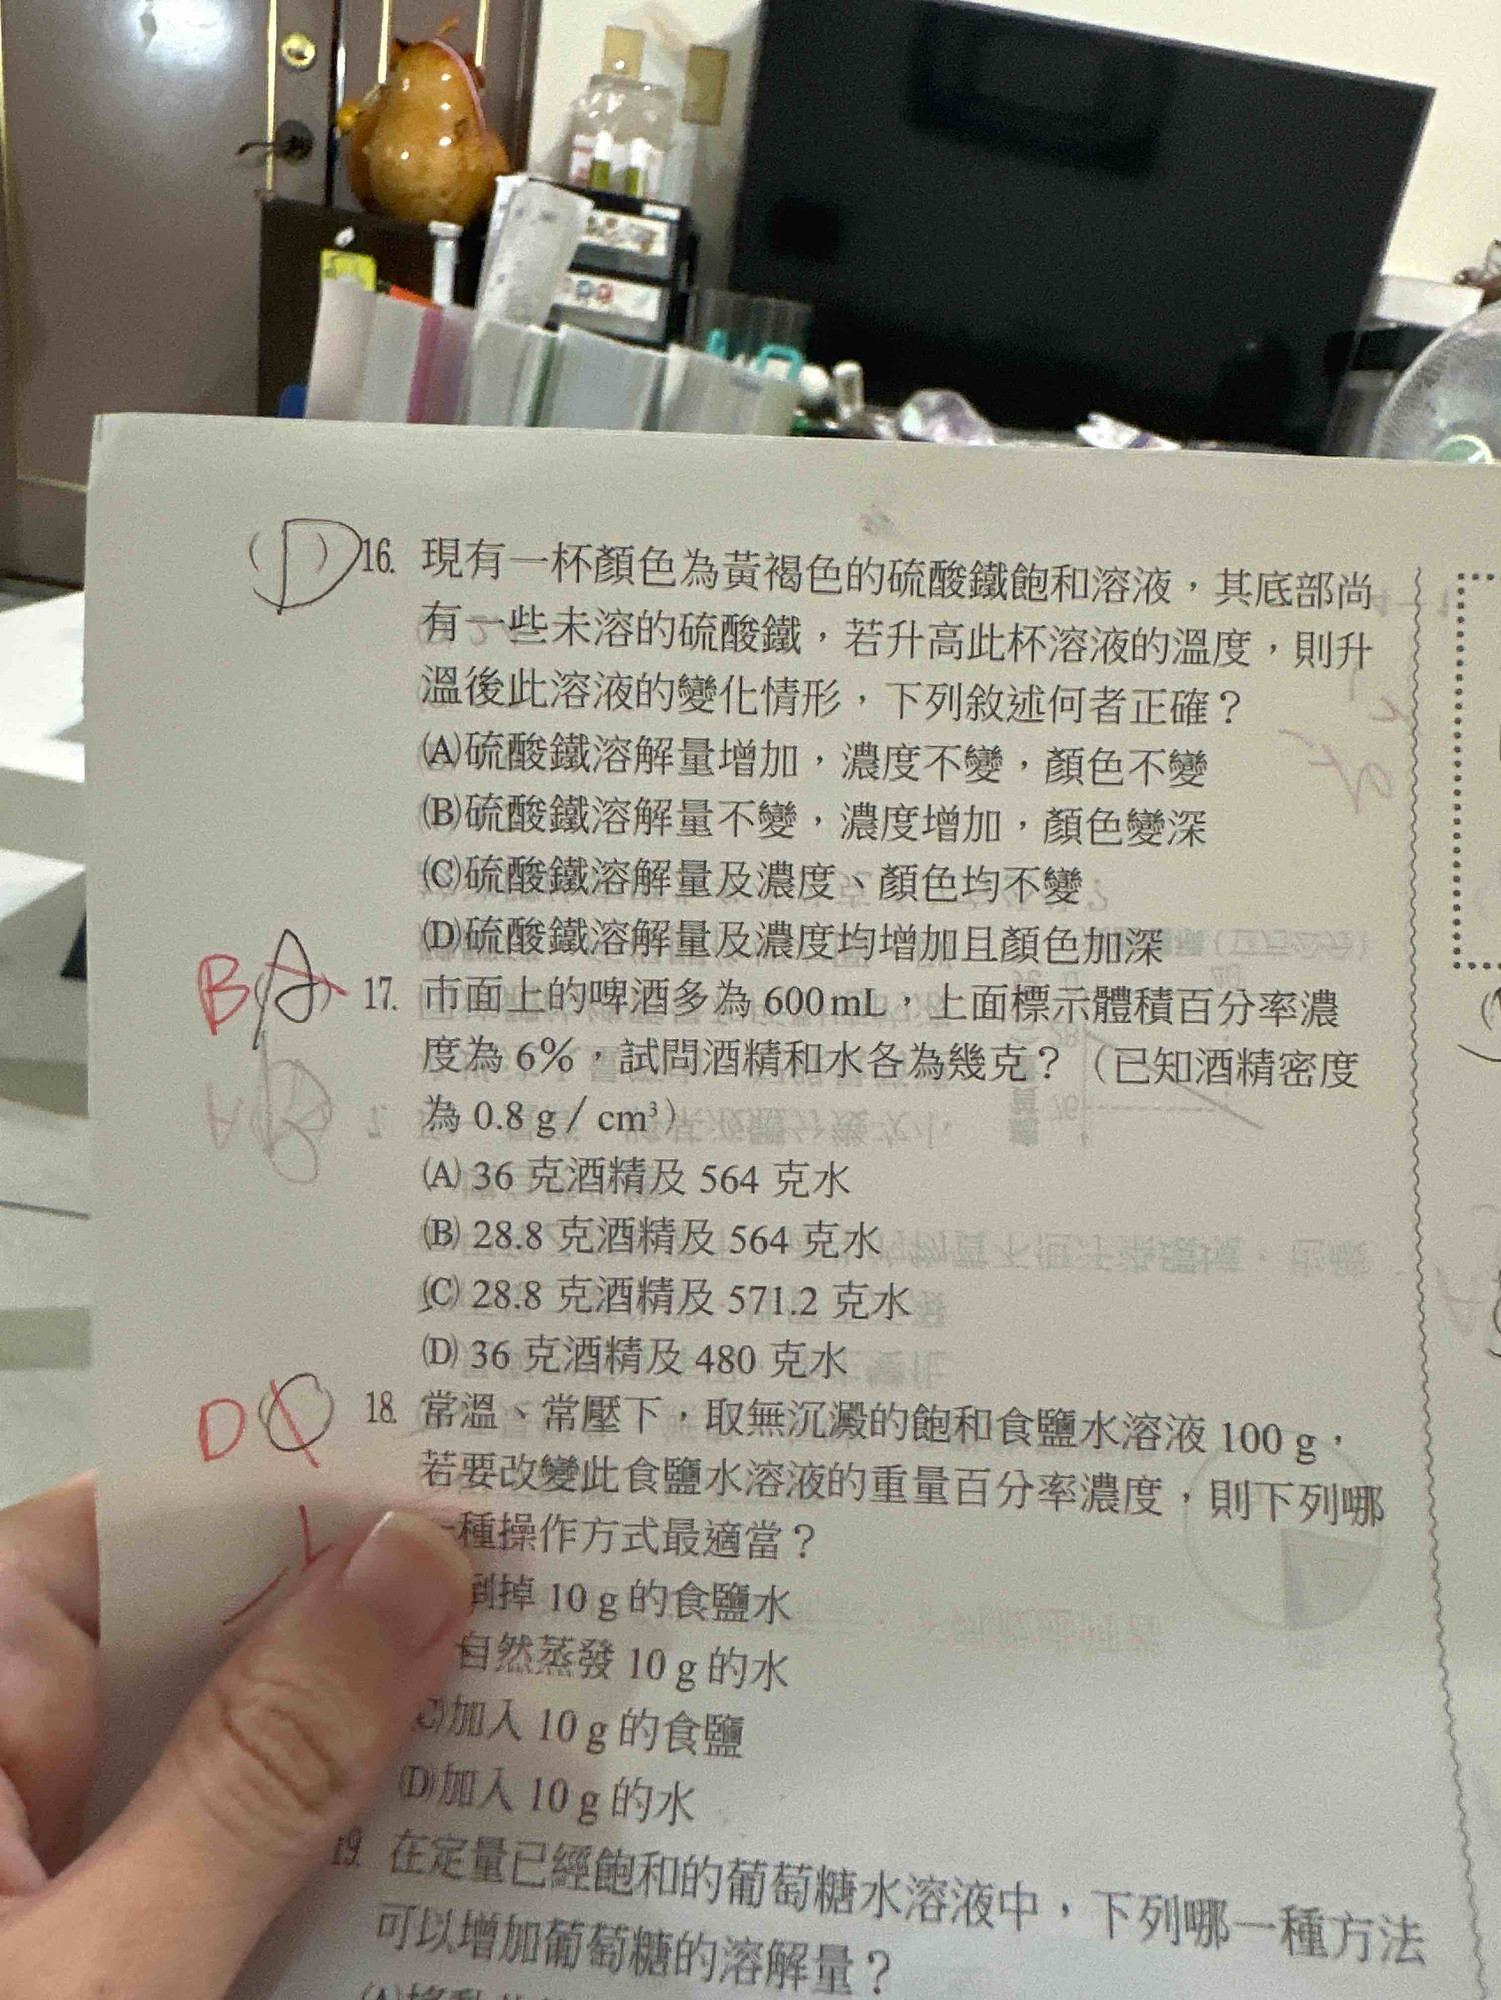 (D) 16. 現有一杯顏色為黃褐色的硫酸鐵飽和溶液，其底部尚
有一些未溶的硫酸鐵，若升高此杯溶液的溫度，則升
溫後此溶液的變化情形，下列敘述何者正確？
(A)硫酸鐵溶解量增加，濃度不變，顏色不變
(B)硫酸鐵溶解量不變，濃度增加，顏色變深
(C)硫酸鐵溶解量及濃度、顏色均不變
(D)硫酸鐵溶解量及濃度均增加且顏色加深
B (A) 17. 市面上的啤酒多為 600 mL，上面標示體積百分率濃
度為 6%，試問酒精和水各為幾克？（已知酒精密度
為 0.8 g／cm³）
(A) 36 克酒精及 564 克水
(B) 28.8 克酒精及 564 克水
(C) 28.8 克酒精及 571.2 克水
(D) 36 克酒精及 480 克水
D 18. 常溫、常壓下，取無沉澱的飽和食鹽水溶液 100 g，
若要改變此食鹽水溶液的重量百分率濃度，則下列哪
一種操作方式最適當？
倒掉 10 g 的食鹽水
自然蒸發 10 g 的水
(C)加入 10 g 的食鹽
(D)加入 10 g 的水
19. 在定量已經飽和的葡萄糖水溶液中，下列哪一種方法
可以增加葡萄糖的溶解量？